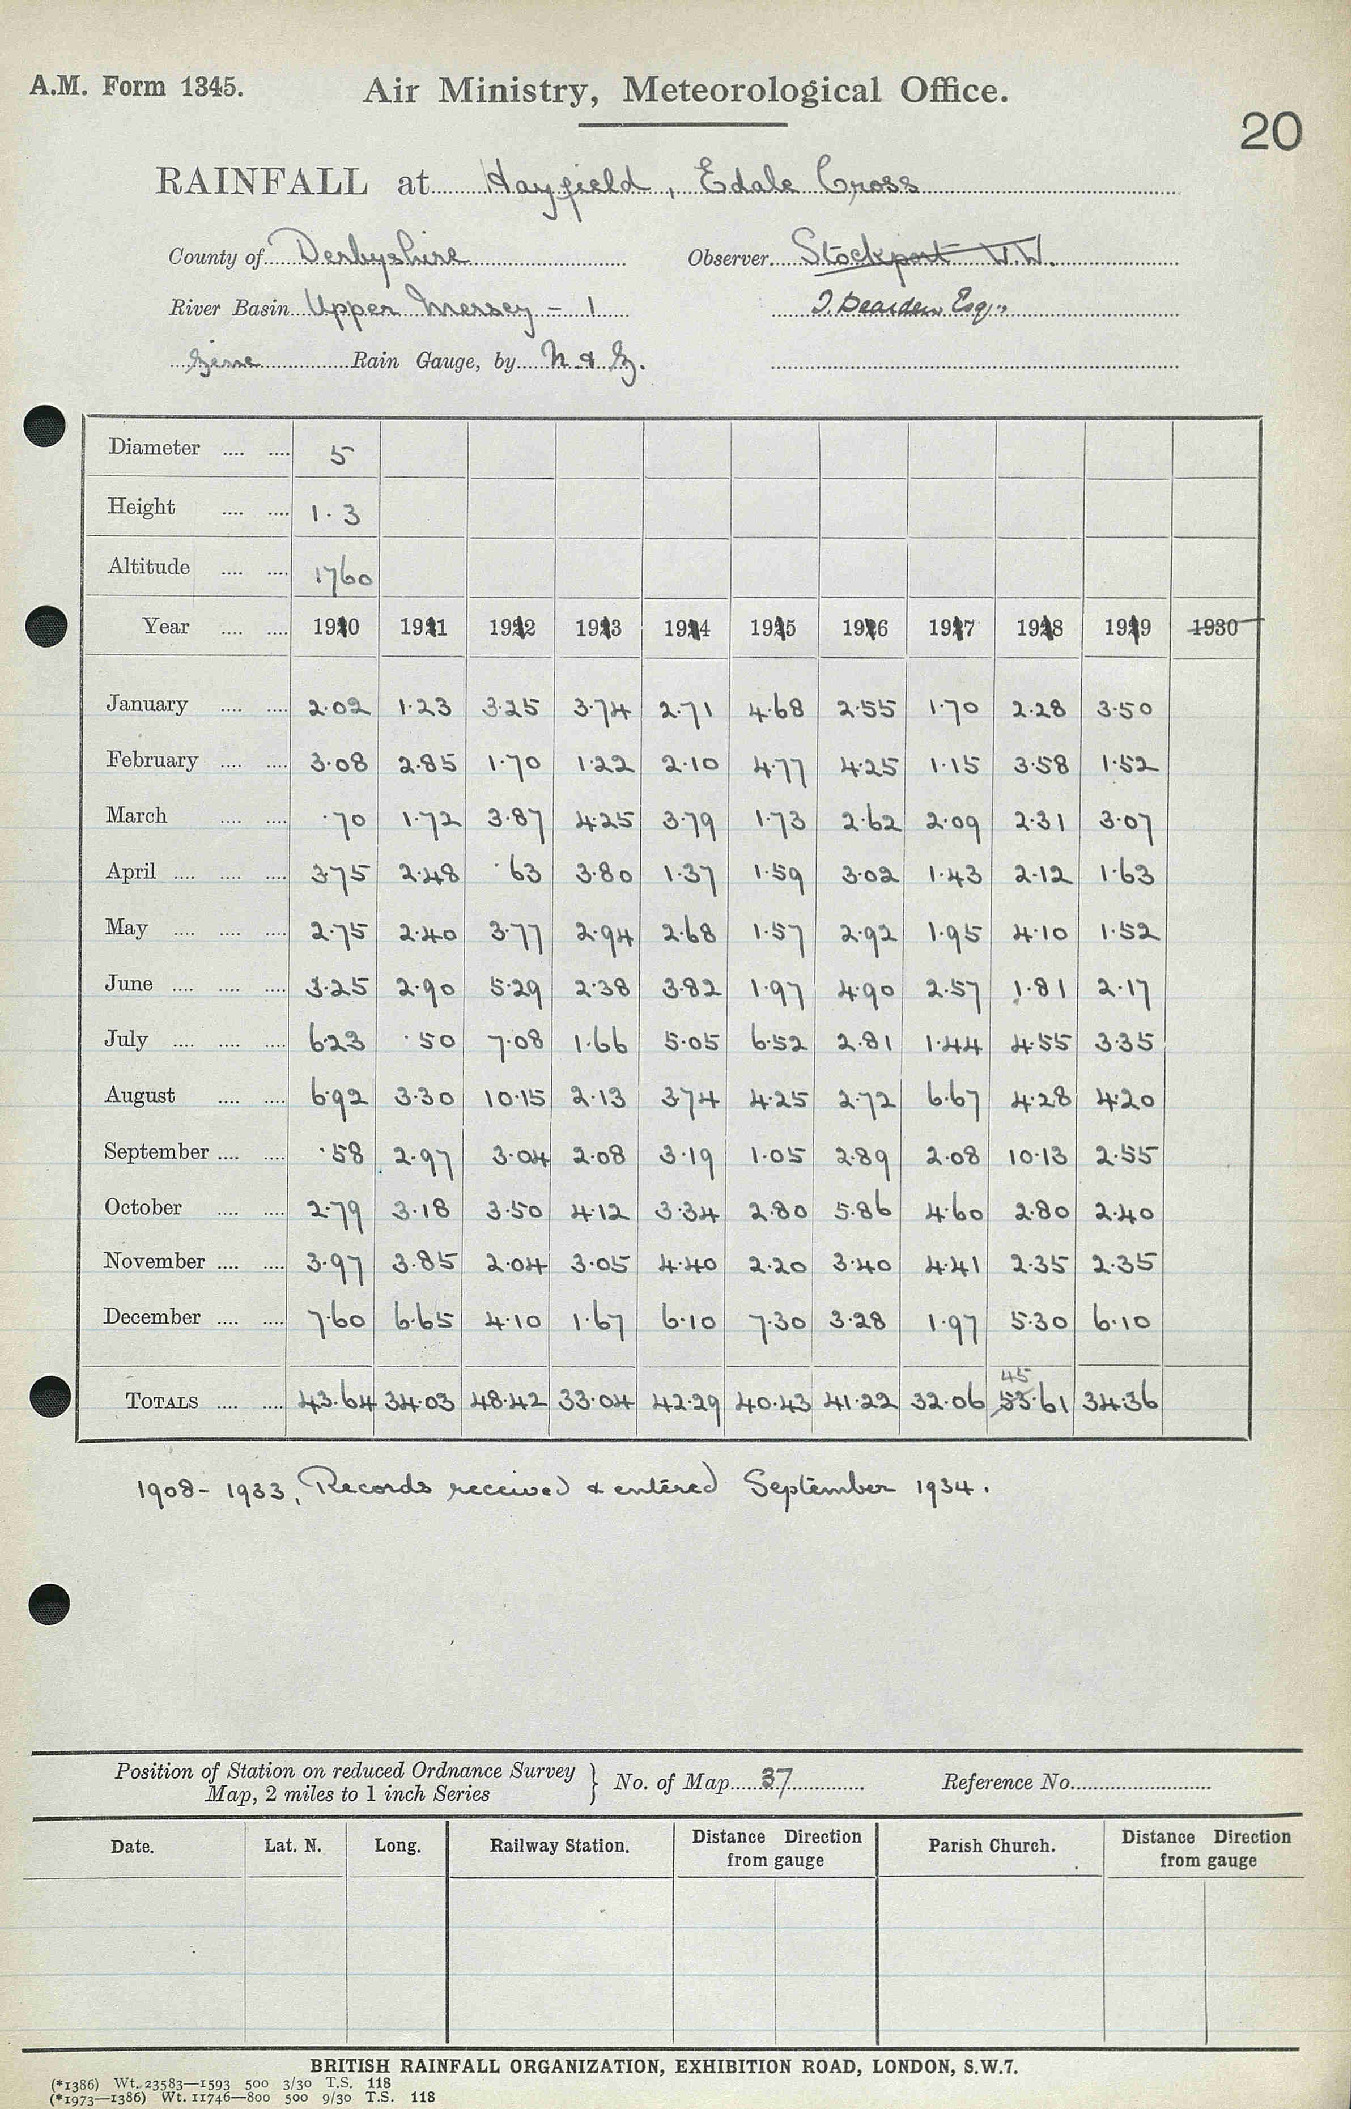 A.M. Form 1345.
Air Ministry, Meteorological Office.
20
RAINFALL at Hayfield, Edale Cross
County of Derbyshire Observer Stockport W.W.
River Basin Upper Mersey - 1 J. Dearden Esq.
Rain Gauge, by N & Z.
Diameter .... .... 5
Height .... .... 1.3
Altitude .... .... 1760
Year .... .... 1910 1911 1912 1913 1914 1915 1916 1917 1918 1919 1930
January .... .... 2.02 1.23 3.25 3.74 2.71 4.68 2.55 1.70 2.28 3.50
February .... .... 3.08 2.85 1.70 1.22 2.10 4.77 4.25 1.15 3.58 1.52
March .... .... .70 1.72 3.87 4.25 3.79 1.73 2.62 2.09 2.31 3.07
April .... .... .... 3.75 2.48 .63 3.80 1.37 1.59 3.02 1.43 2.12 1.63
May .... .... .... 2.75 2.40 3.77 2.94 2.68 1.57 2.92 1.95 4.10 1.52
June .... .... .... 3.25 2.90 5.29 2.38 3.82 1.97 4.90 2.57 1.81 2.17
July .... .... .... 6.23 .50 7.08 1.66 5.05 6.52 2.81 1.44 4.55 3.35
August .... .... 6.92 3.30 10.15 2.13 3.74 4.25 2.72 6.67 4.28 4.20
September .... .... .58 2.97 3.04 2.08 3.19 1.05 2.89 2.08 10.13 2.55
October .... .... 2.79 3.18 3.50 4.12 3.34 2.80 5.86 4.60 2.80 2.40
November .... .... 3.97 3.85 2.04 3.05 4.40 2.20 3.40 4.41 2.35 2.35
December .... .... 7.60 6.65 4.10 1.67 6.10 7.30 3.28 1.97 5.30 6.10
45
TOTALS .... .... 43.64 34.03 48.42 33.04 42.29 40.43 41.22 32.06 53.61 34.36
1908 - 1933, Records received & entered September 1934.
Position of Station on reduced Ordnance Survey
Map, 2 miles to 1 inch Series } No. of Map 37 Reference No.
Date. Lat. N. Long. Railway Station. Distance from gauge Direction Parish Church. Distance from gauge Direction
BRITISH RAINFALL ORGANIZATION, EXHIBITION ROAD, LONDON, S.W.7.
(*1386) Wt. 23583—1593 500 3/30 T.S. 118
(*1973—1386) Wt. 11746—800 500 9/30 T.S. 118